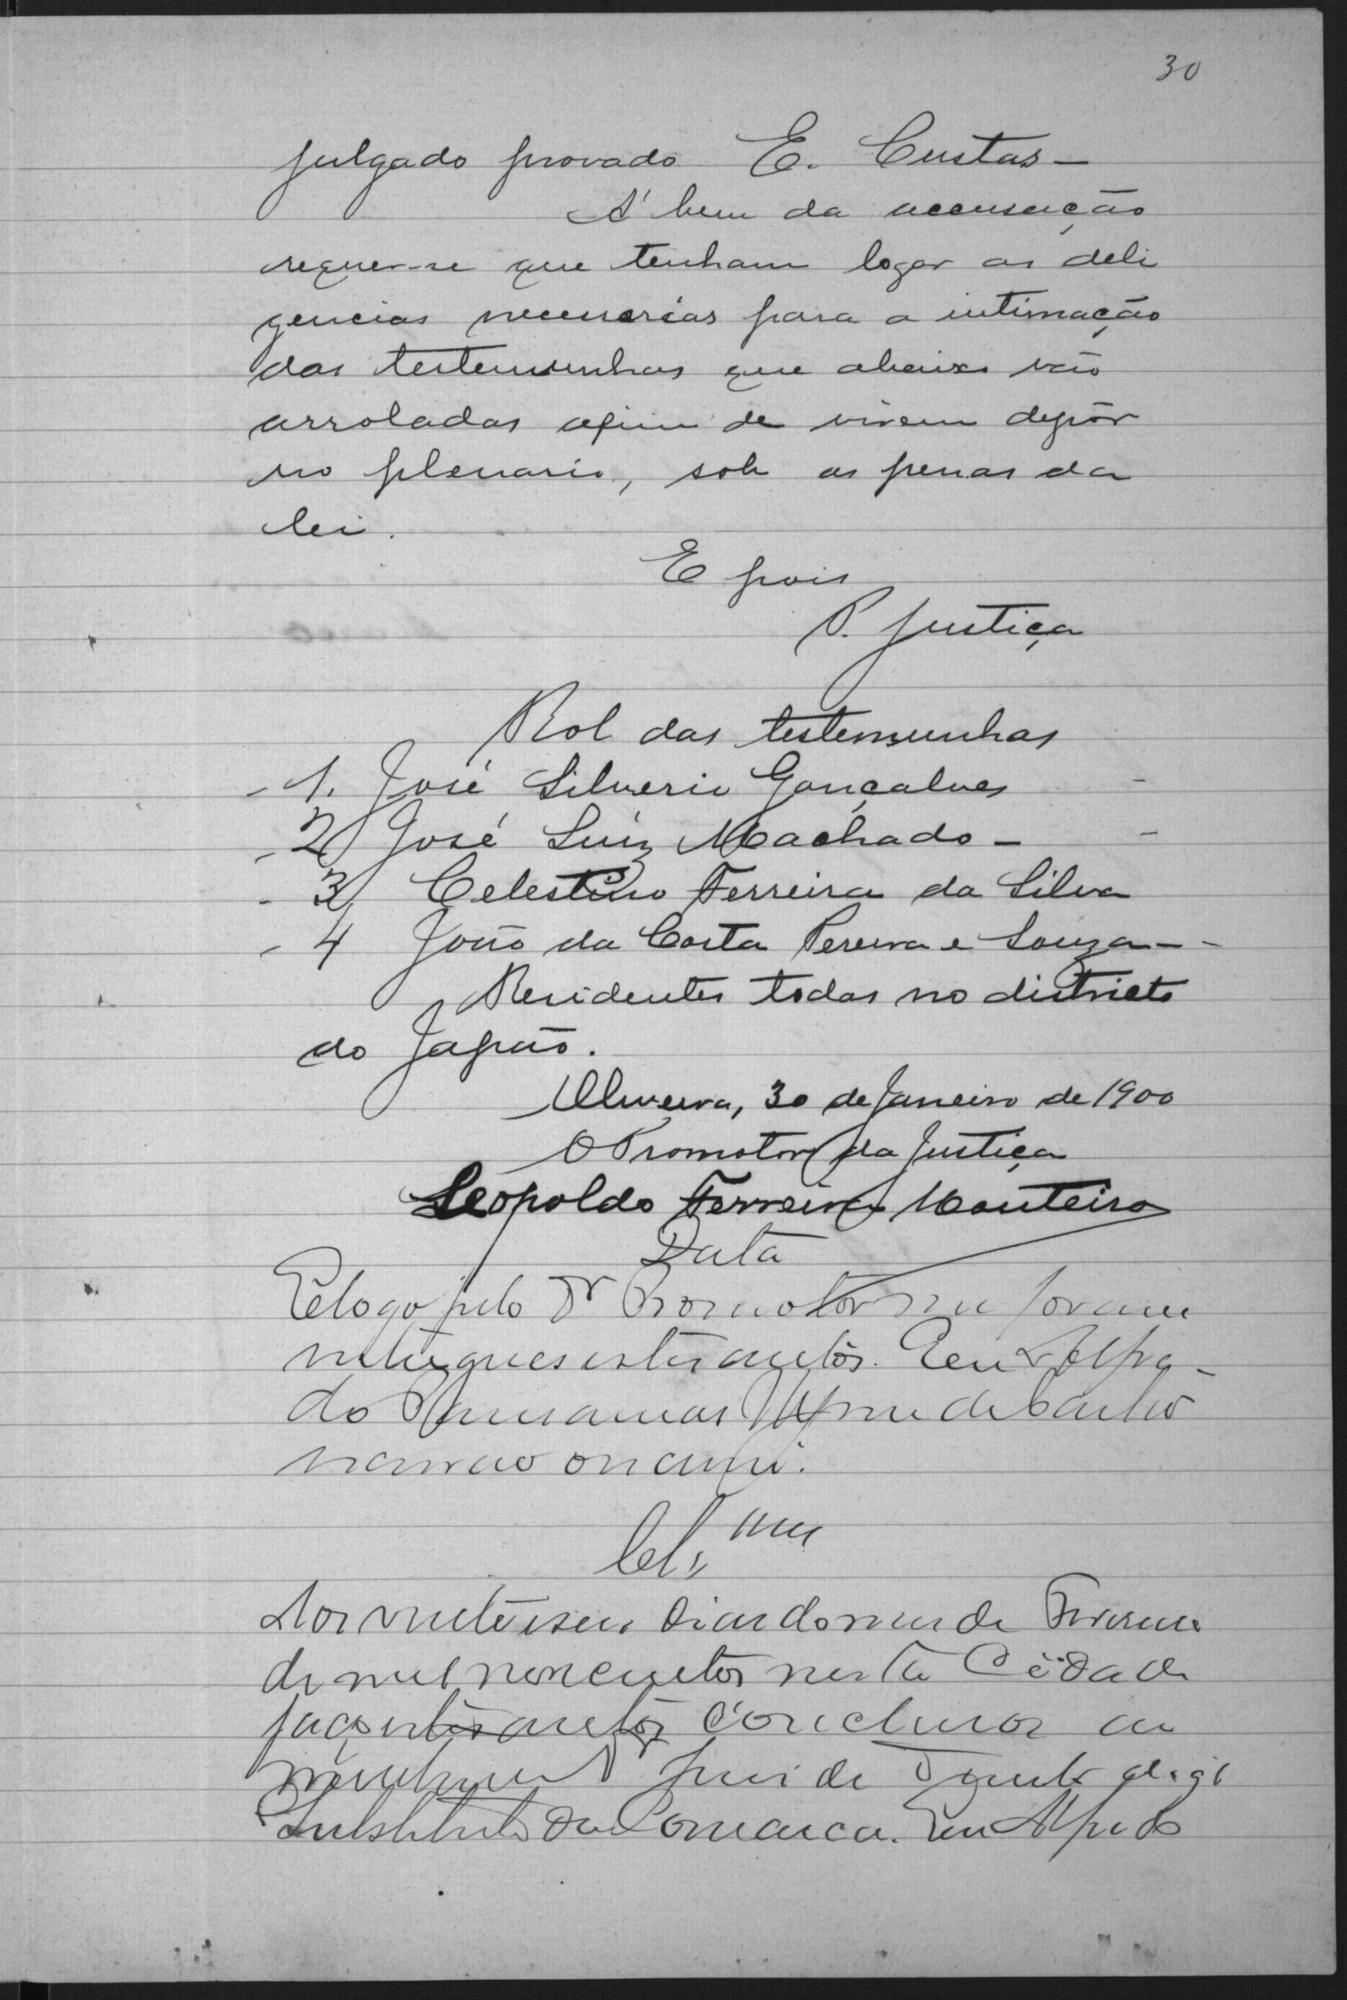 30
julgado provado E. Custas –
A' bem da accusação
requer-se que tenham logar as deli
gencias necessarias para a intimação
das testemunhas que abaixo vão
arroladas afim de virem depôr
no plenario, sob as penas da
lei.
E pois
P. Justiça
Rol das testemunhas
- 1. José Silverio Gonçalves -
- 2 José Luiz Machado – -
- 3 Celestino Ferreira da Silva
- 4 João da Costa Pereira e Souza – -
Residentes todas no districto
do Japão.
Oliveira, 30 de Janeiro de 1900
O Promotor da Justiça
Leopoldo Ferreira Monteiro
Data
E logo pelo Dr Promotor me foram
entregues estes autos. Eu Alfre-
do de Castro
escrivão o escrevi.
Cls.
Aos vinte e seis dias do mes de Fevereiro
de mil novecentos nesta Cidade
faço estes autos conclusos ao
Juiz de
Substituto da Comarca. Eu Alfredo